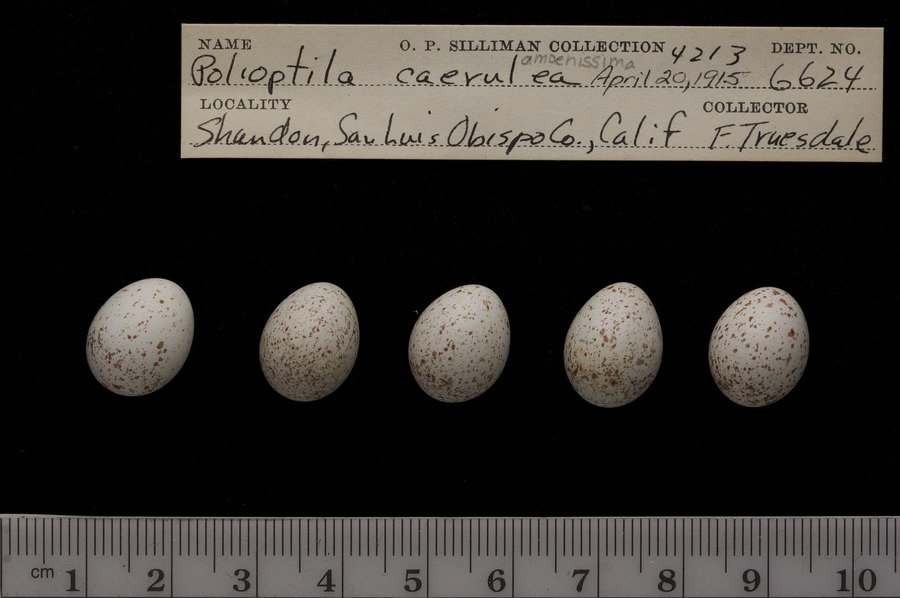 NAME O. P. SILLIMAN COLLECTION 4213 DEPT. NO.
amoenissima
Polioptila caerulea April 20, 1915 6624
LOCALITY COLLECTOR
Shandon, San Luis Obispo Co., Calif F. Truesdale
cm 1 2 3 4 5 6 7 8 9 10